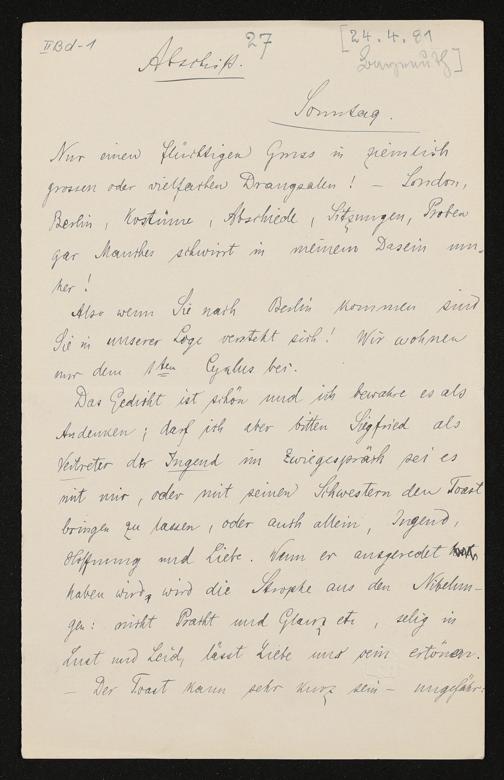 II Bd-1
27
[24.4.81
Abschrift.
Sonntag.
Nur einen flüchtigen Gruss in ziemlich
grossen oder vielfachen Drangsalen! – London,
Berlin, Kostüme, Abschiede, Sitzungen, Proben
gar Manches schwirrt in meinem Dasein um-
her!
Also wenn Sie nach Berlin kommen sind
Sie in unserer Loge versteht sich! Wir wohnen
nur dem 1ten Cyclus bei.
Das Gedicht ist schön und ich bewahre es als
Andenken; darf ich aber bitten Siegfried als
Vertreter der Jugend im Zwiegespräch sei es
mit mir, oder mit seinen Schwestern den Toast
bringen zu lassen, oder auch allein, Jugend,
Hoffnung und Liebe. Wenn er ausgeredet
haben wird, wird die Strophe aus den Nibelun-
gen: nicht Pracht und Glanz etc, selig in
Lust und Leid, lässt Liebe uns sein ertönen.
– Der Toast kann sehr kurz sein – ungefähr: